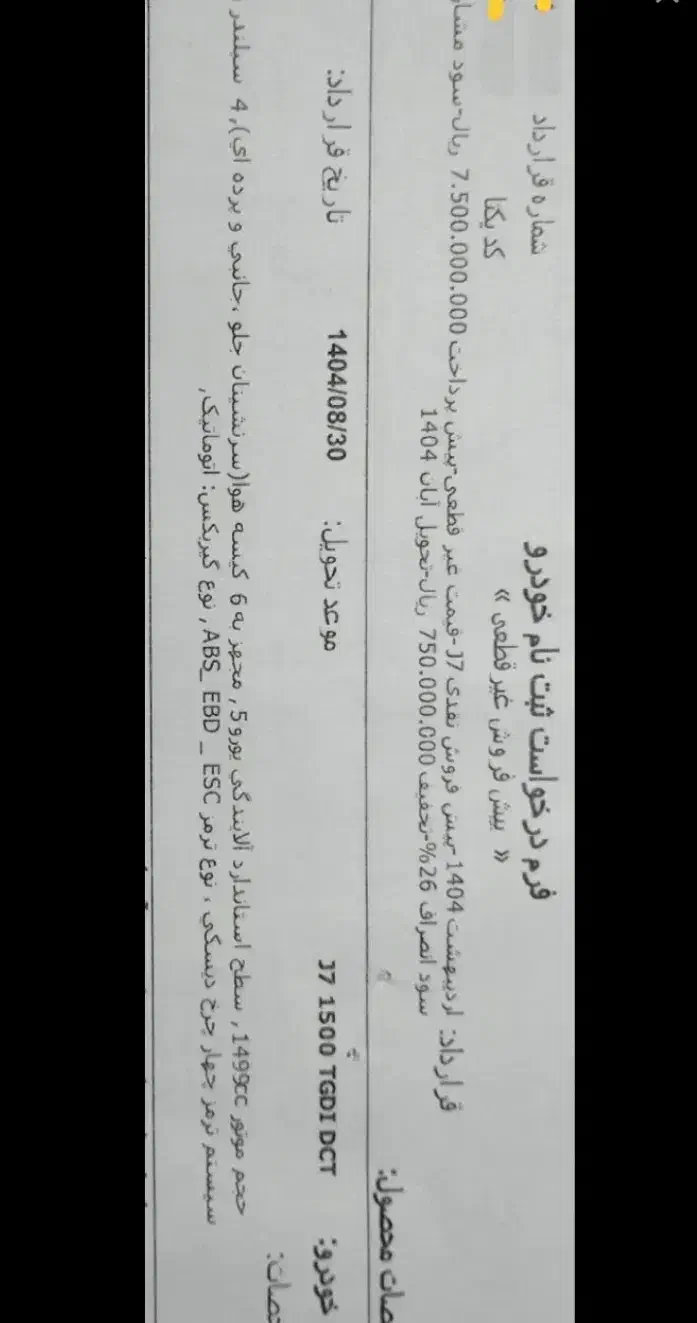 فرم درخواست ثبت نام خودرو
« پیش فروش غیر قطعی »
شماره قرارداد
کد یکتا
قرارداد: اردیبهشت 1404-پیش فروش نقدی J7-قیمت غیر قطعی-پیش پرداخت 7.500.000.000 ریال-سود
سود انصراف 26%-تخفیف 750.000.000 ریال-تحویل آبان 1404
محصول:
خودرو: J7 1500 TGDI DCT موعد تحویل: 1404/08/30 تاریخ قرارداد:
حجم موتور 1499cc , سطح استاندارد آلایندگی یورو 5 , مجهز به 6 کیسه هوا(سرنشینان جلو ،جانبی و پرده ای), 4 سیلندر
سیستم ترمز چهار چرخ دیسکی ، نوع ترمز ABS_ EBD _ ESC , نوع گیربکس: اتوماتیک,